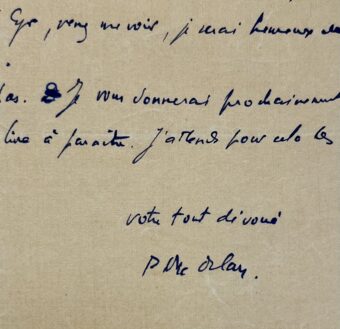 venez me voir, je serai heureux de
as. Je vous donnerai prochainement
livre à paraître. J'attends pour cela les
votre tout dévoué
P. Mac Orlan.